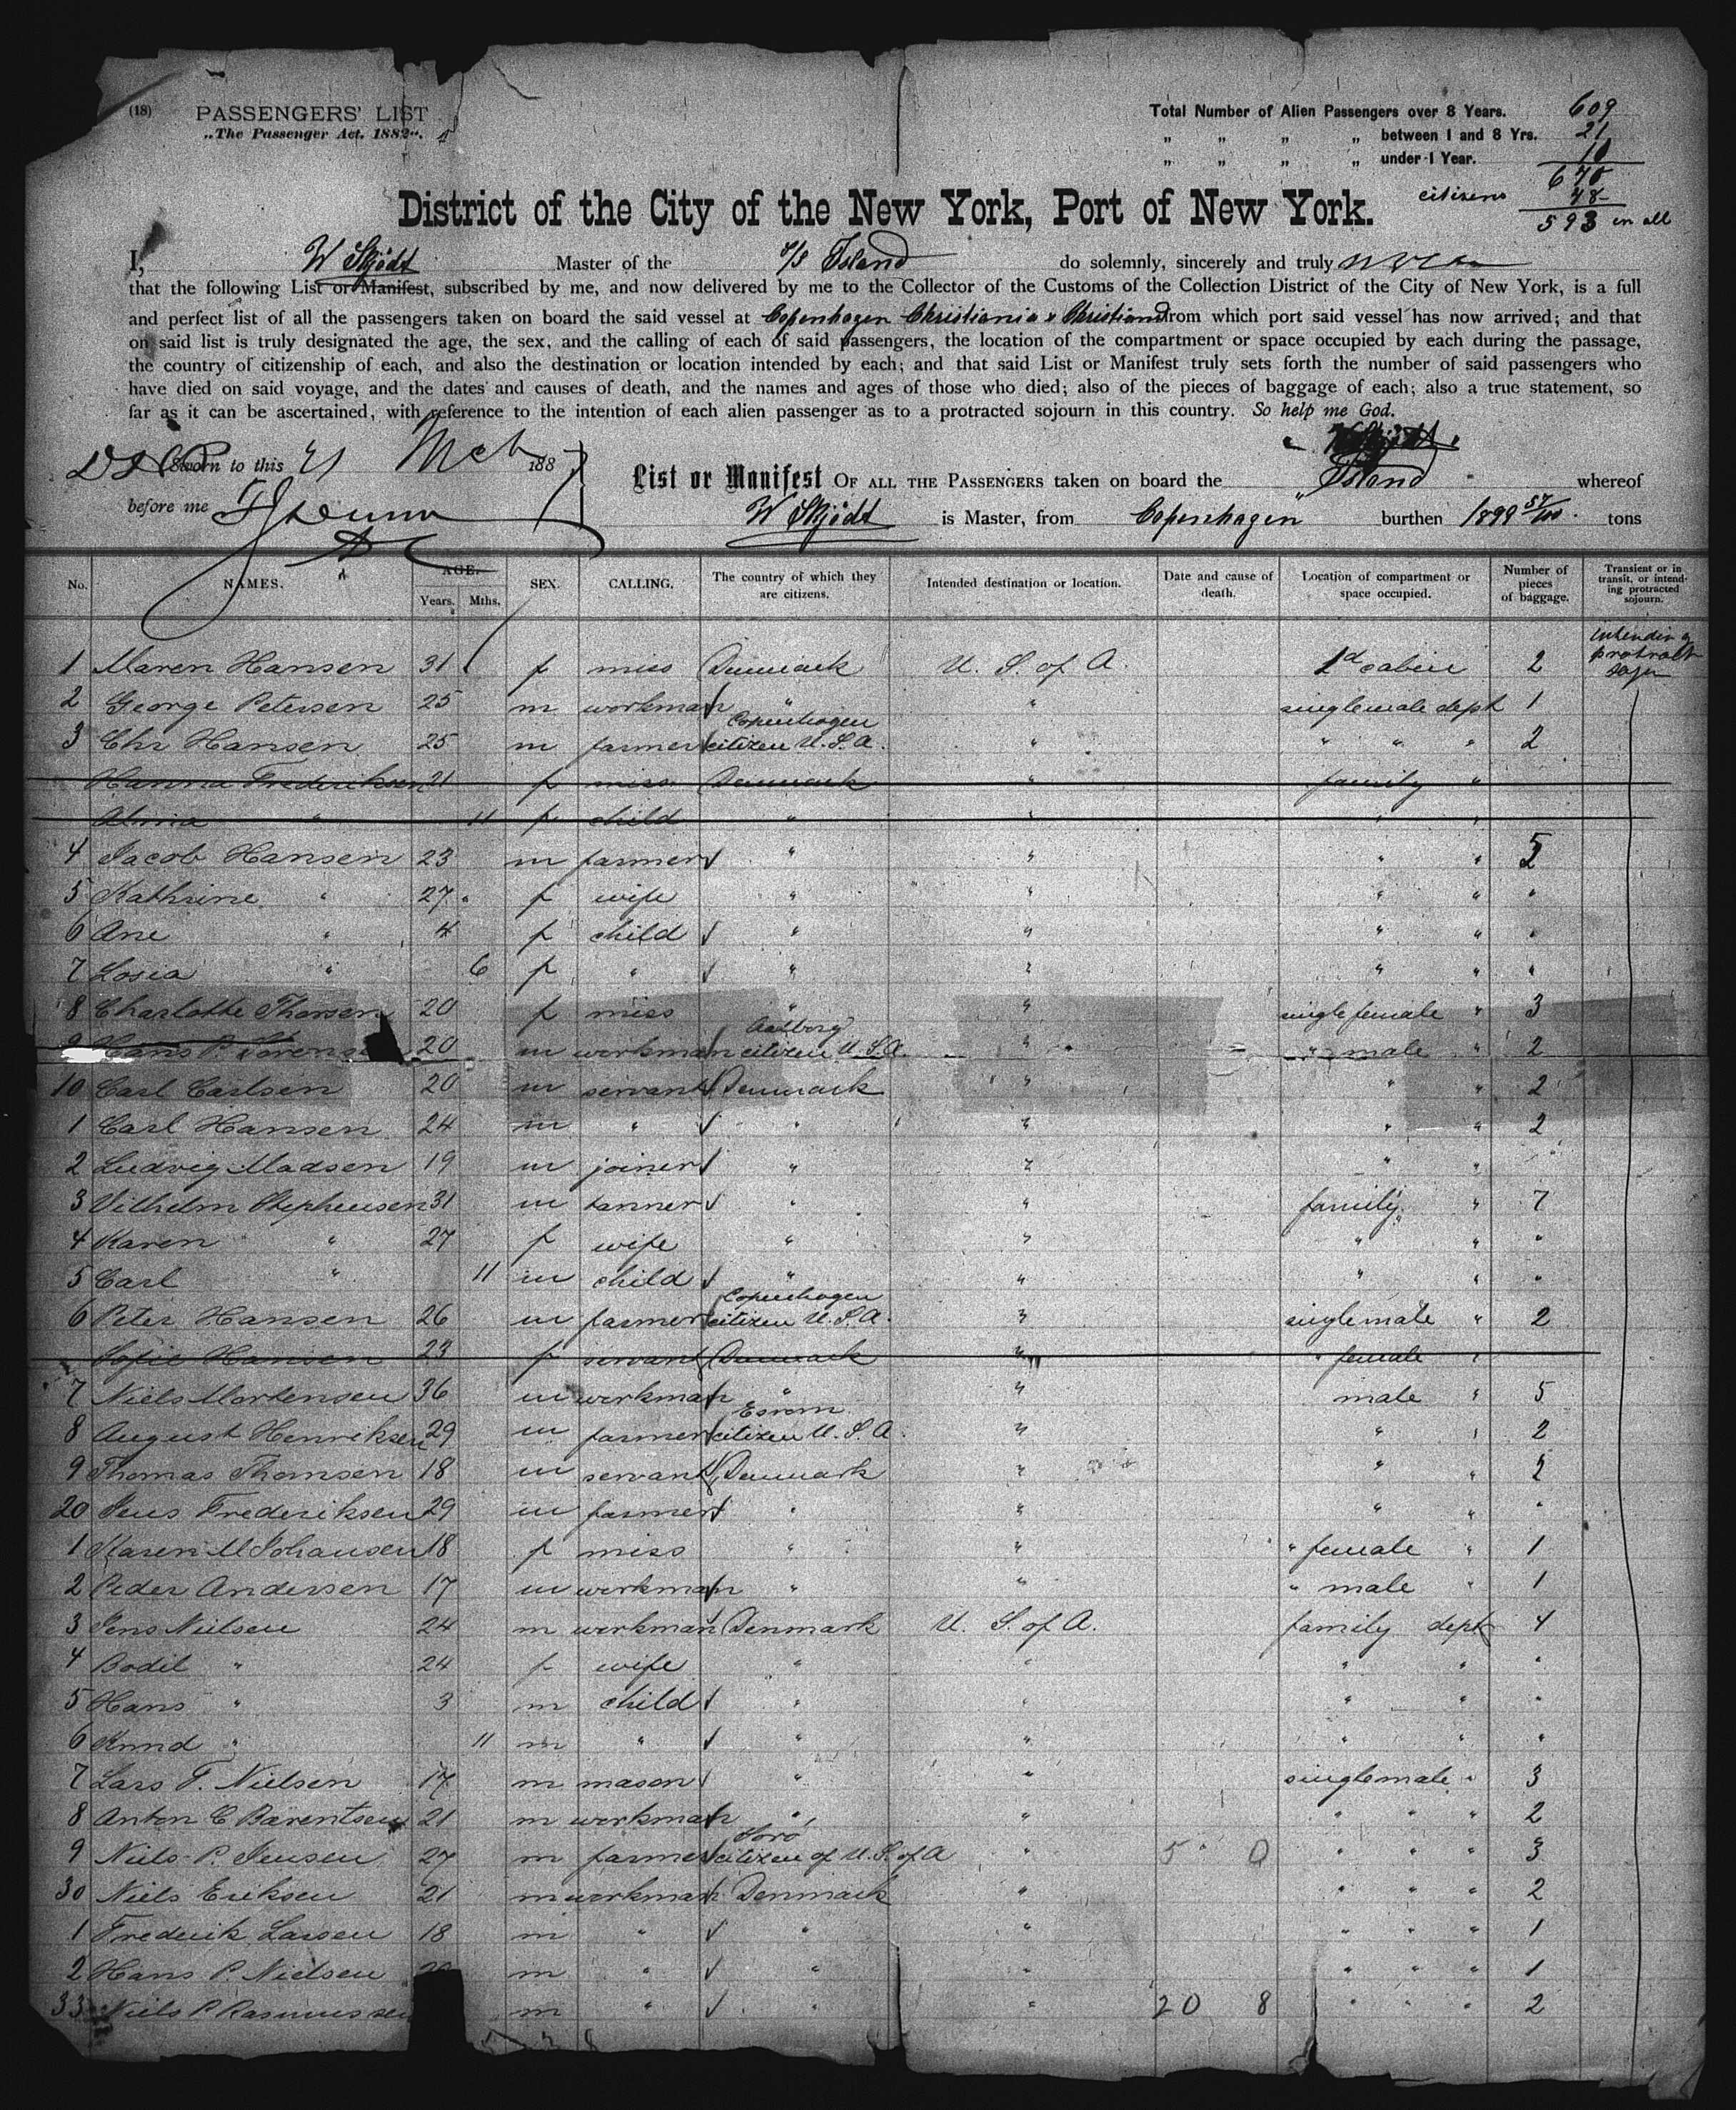 (18) PASSENGERS' LIST
„The Passenger Act. 1882“.
Total Number of Alien Passengers over 8 Years. 609
„ „ „ „ between 1 and 8 Yrs. 21
„ „ „ „ under 1 Year. 10
640
citizens 48
593 in all
District of the City of the New York, Port of New York.
I, W Skjödt Master of the S/S Island do solemnly, sincerely and truly
that the following List or Manifest, subscribed by me, and now delivered by me to the Collector of the Customs of the Collection District of the City of New York, is a full
and perfect list of all the passengers taken on board the said vessel at Copenhagen Christiania & Christiansand from which port said vessel has now arrived; and that
on said list is truly designated the age, the sex, and the calling of each of said passengers, the location of the compartment or space occupied by each during the passage,
the country of citizenship of each, and also the destination or location intended by each; and that said List or Manifest truly sets forth the number of said passengers who
have died on said voyage, and the dates and causes of death, and the names and ages of those who died; also of the pieces of baggage of each; also a true statement, so
far as it can be ascertained, with reference to the intention of each alien passenger as to a protracted sojourn in this country. So help me God.
W Skjödt
Sworn to this 21 Mch 188
before me
List or Manifest OF ALL THE PASSENGERS taken on board the Island whereof
W Skjödt is Master, from Copenhagen burthen 1899 57/100 tons
No. NAMES. AGE. Years. Mths. SEX. CALLING. The country of which they are citizens. Intended destination or location. Date and cause of death. Location of compartment or space occupied. Number of pieces of baggage. Transient or in transit, or intending protracted sojourn.
1 Maren Hansen 31 f miss Denmark U. S. of A. 1st cabin 2 Intending protract
2 George Petersen 25 m workman " " single male dept 1
Copenhagen
3 Chr Hansen 25 m farmer citizen U.S.A. " " " " 2
Hanna Frederiksen 21 f miss Denmark " family "
" 11 f child " " " "
4 Jacob Hansen 23 m farmer " " " " 5
5 Kathrine " 27 f wife " " " " "
6 Ane " 4 f child " " " " "
7 Losia " 6 f " " " " " "
8 Charlotte Thorsen 20 f miss " " single female " 3
Aalborg
9 Hans P. 20 m workman citizen U.S.A. " " male " 2
10 Carl Carlsen 20 m servant Denmark " " " 2
1 Carl Hansen 24 m " " " " " 2
2 Ludvig Madsen 19 m joiner " " " " "
3 Vilhelm Stephensen 31 m tanner " " family " 7
4 Karen " 27 f wife " " " " "
5 Carl " 11 m child " " " " "
Copenhagen
6 Peter Hansen 26 m farmer citizen U.S.A. " single male " 2
Sofie Hansen 23 f servant Denmark " " female "
7 Niels Mortensen 36 m workman " " male " 5
Esrom
8 August Henriksen 29 m farmer citizen U.S.A. " " " 2
9 Thomas Thomsen 18 m servant Denmark " " " 2
20 Jens Frederiksen 29 m farmer " " " " "
1 Karen M Johansen 18 f miss " " " female " 1
2 Peder Andersen 17 m workman " " " male " 1
3 Jens Nielsen 24 m workman Denmark U. S. of A. family dept 4
4 Bodil " 24 f wife " " " " "
5 Hans " 3 m child " " " " "
6 Knud " 11 m " " " " " "
7 Lars T. Nielsen 17 m mason " " single male " 3
8 Anton C Bärentsen 21 m workman " " " " " 2
Sorö
9 Niels P. Jensen 27 m farmer citizen of U.S. of A " 5 0 " " " 3
30 Niels Eriksen 21 m workman Denmark " " " " 2
1 Frederik Larsen 18 m " " " " " " 1
2 Hans P. Nielsen m " " " " " " 1
33 Niels P Rasmussen m " " " 20 8 " " " 2